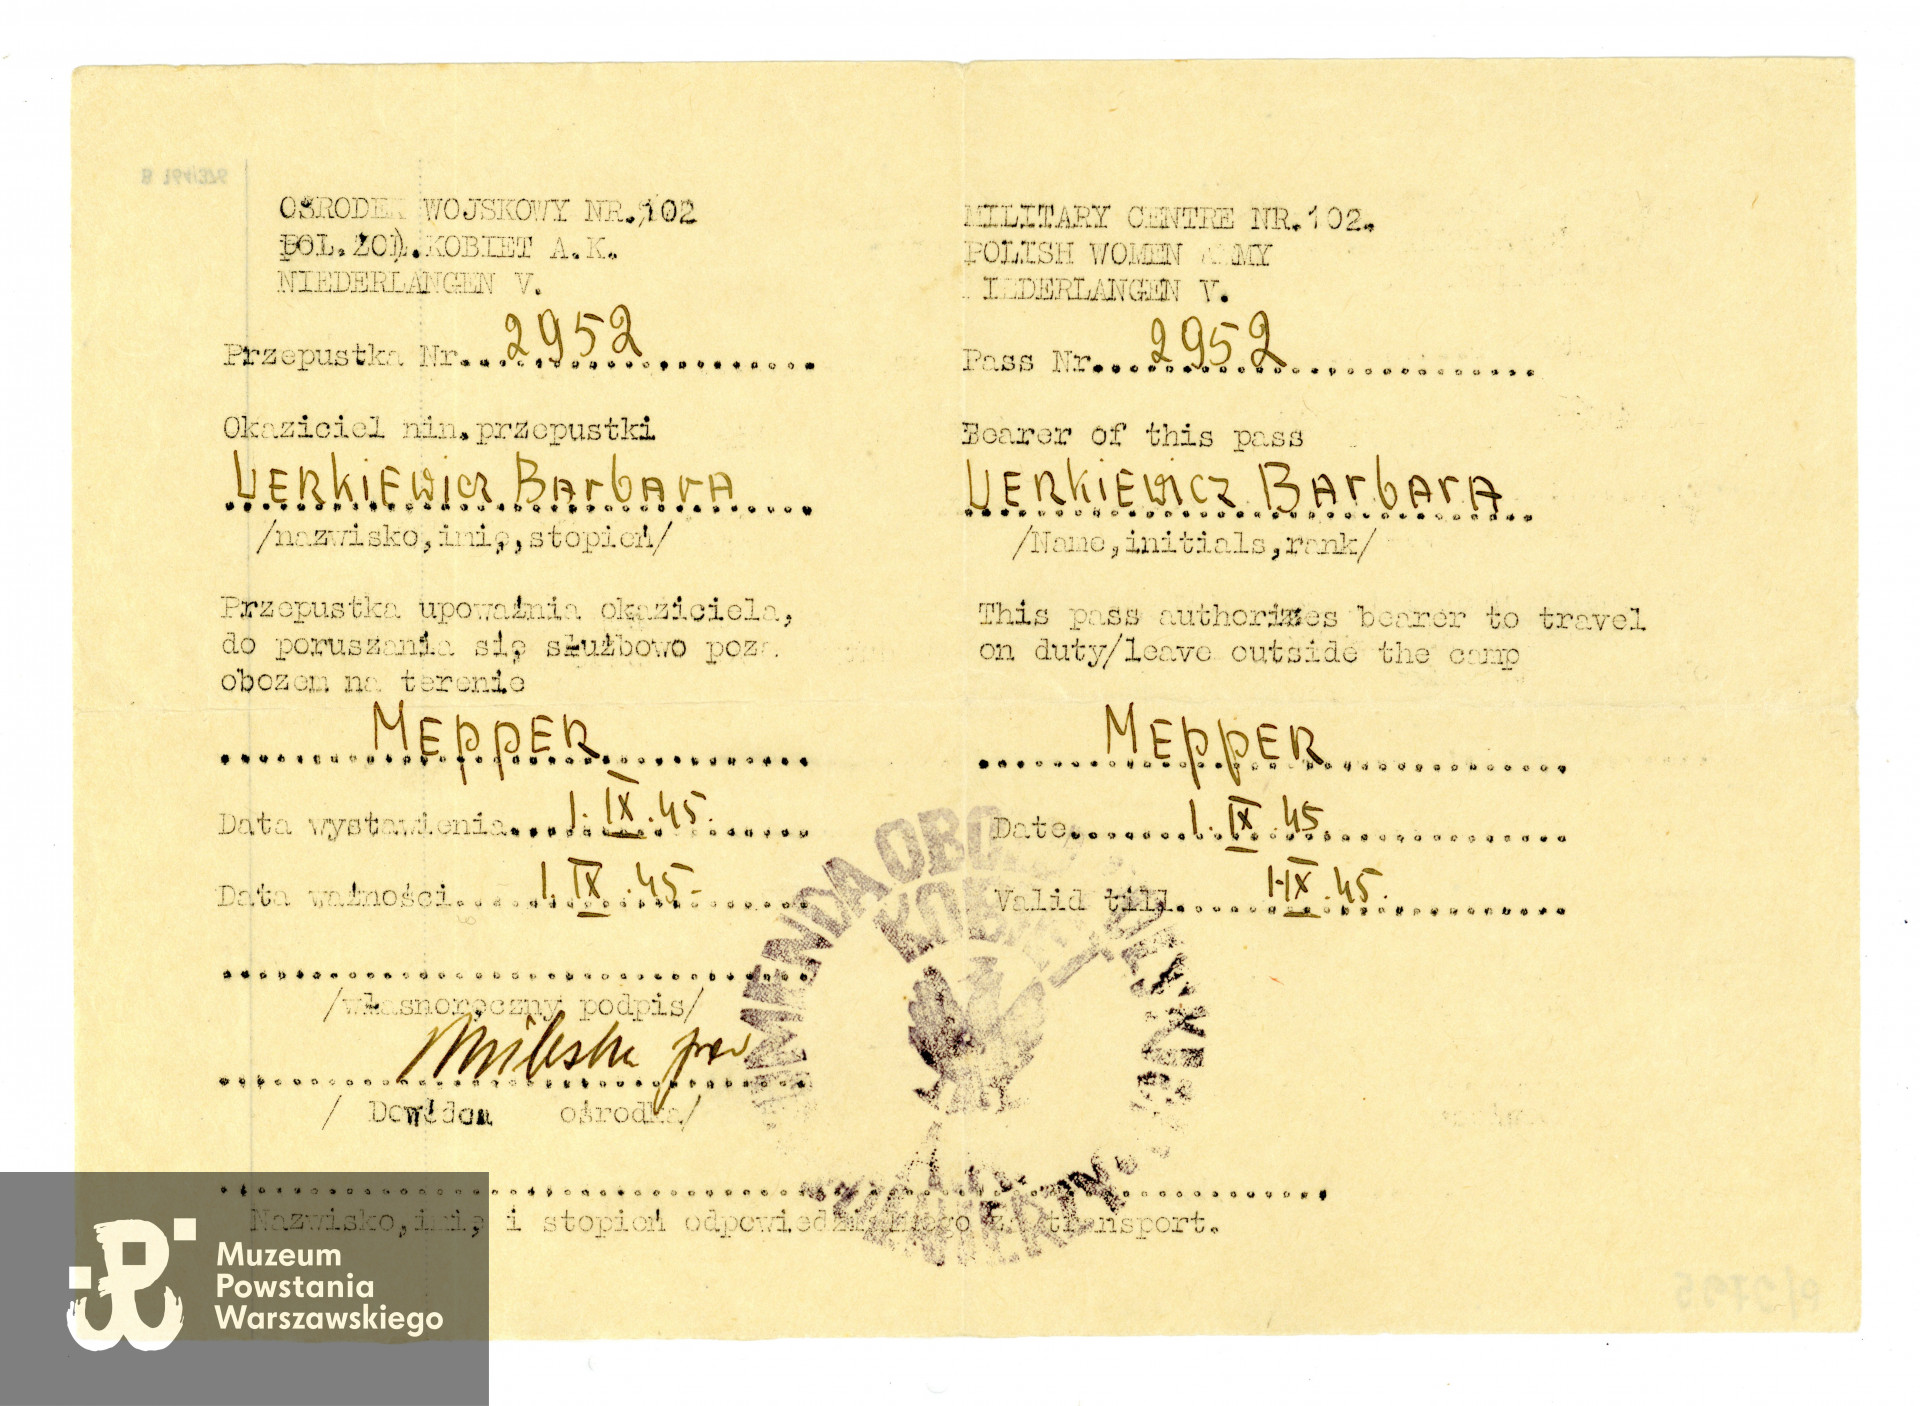 OŚRODEK WOJSKOWY NR.102
POL.ŻOŁ.KOBIET A.K.
NIEDERLANGEN V.
Przepustka Nr. 2952
Okaziciel nin.przepustki
UERKIEWICZ BARBARA
/nazwisko,imię,stopień/
Przepustka upoważnia okaziciela,
do poruszania się służbowo poza
obozem na terenie
MEPPER
Data wystawienia 1.IX.45.
Data ważności 1.IX.45-
/własnoręczny podpis/
/ Dowódca ośrodka/
Nazwisko,imię i stopień odpowiedzialnego za transport.
MILITARY CENTRE NR.102.
POLISH WOMEN ARMY
NIEDERLANGEN V.
Pass Nr. 2952
Bearer of this pass
UERKIEWICZ BARBARA
/Name,initials,rank/
This pass authorizes bearer to travel
on duty/leave outside the camp
MEPPER
Date 1.IX.45
Valid till 1.IX.45.
KOMENDA OBO
Muzeum
Powstania
Warszawskiego